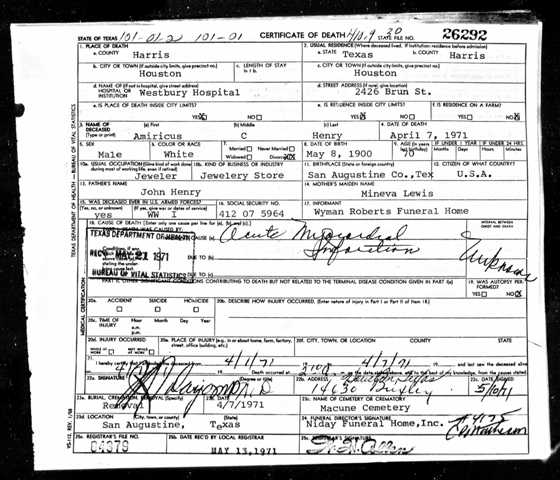 STATE OF TEXAS 101-01-2 101-01 CERTIFICATE OF DEATH STATE FILE NO. 26292
1. PLACE OF DEATH 2. USUAL RESIDENCE (Where deceased lived. If institution: residence before admission)
a. COUNTY Harris a. STATE Texas b. COUNTY Harris
b. CITY OR TOWN (If outside city limits, give precinct no.) c. LENGTH OF STAY in 1 b. c. CITY OR TOWN (If outside city limits, give precinct no.)
Houston Houston
d. NAME OF (If not in hospital, give street address) HOSPITAL OR INSTITUTION Westbury Hospital d. STREET ADDRESS (If rural, give location) 2426 Brun St.
e. IS PLACE OF DEATH INSIDE CITY LIMITS? YES NO e. IS RESIDENCE INSIDE CITY LIMITS? YES NO f. IS RESIDENCE ON A FARM? YES NO
3. NAME OF DECEASED (Type or print) (a) First (b) Middle (c) Last 4. DATE OF DEATH
Amiricus C Henry April 7, 1971
5. SEX 6. COLOR OR RACE 7. Married Never Married Widowed Divorced 8. DATE OF BIRTH 9. AGE IF UNDER 1 YEAR IF UNDER 24 HRS.
Male White May 8, 1900 70 Months Days Hours Min.
10a. USUAL OCCUPATION (Give kind of work done during most of working life, even if retired) 10b. KIND OF BUSINESS OR INDUSTRY 11. BIRTHPLACE (State or foreign country) 12. CITIZEN OF WHAT COUNTRY?
Jeweler Jewelery Store San Augustine Co.,Tex U.S.A.
13. FATHER'S NAME 14. MOTHER'S MAIDEN NAME
John Henry Mineva Lewis
15. WAS DECEASED EVER IN U.S. ARMED FORCES? 16. SOCIAL SECURITY NO. 17. INFORMANT
(Yes, no, or unknown) (If yes, give war or dates of service)
yes WW I 412 07 5964 Wyman Roberts Funeral Home
18. CAUSE OF DEATH (Enter only one cause per line for (a), (b), and (c).) INTERVAL BETWEEN ONSET AND DEATH
Acute Myocardial Infarction Unknown
TEXAS DEPARTMENT OF HEALTH
REC'D MAY 21 1971
BUREAU OF VITAL STATISTICS
DUE TO (b)
DUE TO (c)
PART II. OTHER SIGNIFICANT CONDITIONS CONTRIBUTING TO DEATH BUT NOT RELATED TO THE TERMINAL DISEASE CONDITION GIVEN IN PART I(a) 19. WAS AUTOPSY PERFORMED? YES NO
20a. ACCIDENT SUICIDE HOMICIDE 20b. DESCRIBE HOW INJURY OCCURRED. (Enter nature of injury in Part I or Part II of Item 18.)
20c. TIME OF INJURY Hour Month Day Year a.m. p.m.
20d. INJURY OCCURRED WHILE AT WORK NOT WHILE AT WORK 20e. PLACE OF INJURY (e.g. in or about home, farm, factory, street, office building, etc.) 20f. CITY, TOWN, OR LOCATION COUNTY STATE
21. I hereby certify that 4/1/71 4/7/71 and last saw the deceased alive
Death occurred at from the causes stated
22a. SIGNATURE (Degree or title) M.D. 22b. ADDRESS Houston Texas 22c. DATE SIGNED 5/10/71
23a. BURIAL, CREMATION, REMOVAL (Specify) Removal 23b. DATE 4/7/1971 23c. NAME OF CEMETERY OR CREMATORY Macune Cemetery
23d. LOCATION (City, town, or county) (State) San Augustine, Texas 24. FUNERAL DIRECTOR'S SIGNATURE Niday Funeral Home,Inc. #4175
25a. REGISTRAR'S FILE NO. 25b. DATE REC'D BY LOCAL REGISTRAR MAY 13 1971 25c. REGISTRAR'S SIGNATURE
TEXAS DEPARTMENT OF HEALTH — BUREAU OF VITAL STATISTICS
MEDICAL CERTIFICATION